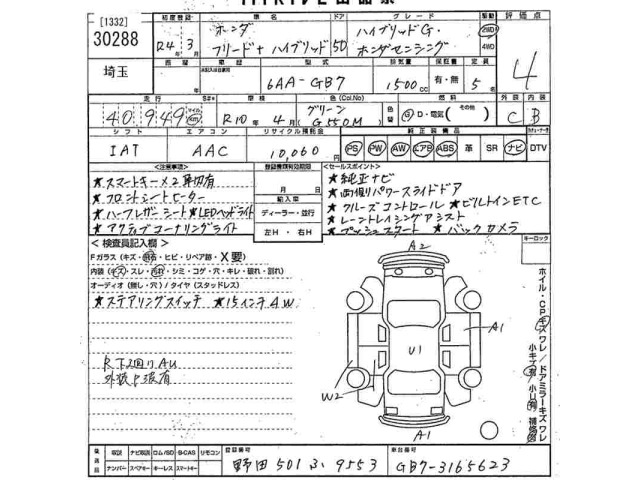 [1332]
30288
初度登録 車名 ドア グレード 駆動 評価点
R4年3月 ホンダ フリード+ ハイブリッド 5D ハイブリッドG・ホンダセンシング 2WD 4WD 4
埼玉
型式 排気量 保証書 定員
6AA-GB7 1500cc 有・無 5名
走行 車検 色(Col.No) 色替 燃料 外装 内装
40,949 R10年4月 グリーン G550M G D・電気 (その他) C B
シフト エアコン リサイクル預託金 純正装備品
IAT AAC 10,060 PS PW AW エアB ABS 革 SR ナビ DTV
<注意事項> <セールスポイント>
★スマートキー×2 取切有
★フロントシートヒーター
★ハーフレザーシート ★LEDヘッドライト
★アクティブコーナリングライト
月 日
輸入車
ディーラー・並行
左H・右H
★純正ナビ
★両側パワースライドドア
★クルーズコントロール ★ビルトインETC
★レーントレイシングアシスト
★プッシュスタート ★バックカメラ
キーロック
<検査員記入欄>
Fガラス (キズ・飛石・ヒビ・リペア跡・X要)
内装 (キズ・スレ・汚れ・シミ・コゲ・穴・キレ・破れ・割れ)
オーディオ (無し・穴) / タイヤ (スタッドレス)
★ステアリングスイッチ ★15インチAW
R下廻りAU
外装P波有
A2
A1
U1
W2
A1
ホイル・CPキズワレ/ドアミラーキズワレ
小キズ有 小U有 補修跡
発送品 取説 ナビ取説 ロム/SD B-CAS リモコン
ナンバー スペアキー キーレス スマートキー
登録番号 野田 501 ふ 9553
車台番号 GB7-3165623